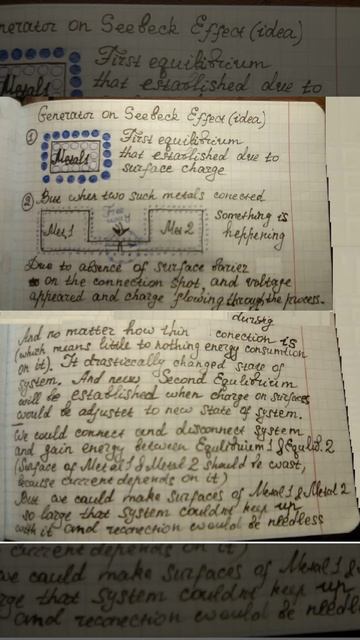 nerator on Seebeck Effect (idea)
First equilibrium
that established due to
Metals
Generator on Seebeck Effect (idea)
① First equilibrium
Metals that established due to
surface charge
② But when two such metals conected
Met.1 Met 2 something is
heppening
Due to absence of surface barier
on the connection spot, and voltage
appeared and charge flowing through the process.
durstig
And no matter how thin conection is
(which means little to nothing energy consumtion
on it). It drasticcally changed state of
system. And neww Second Equilibrium
will be established when charge on surfaces
would be adjustet to new state of system.
We could connect and disconnect system
and gain energy between Equilibrium 1 & Equilib.2
(Suface of Metal 1 & Metal 2 should be wast,
because current depends on it)
But we could make surfaces of Metal 1 & Metal 2
so large that system couldne keep up
with it and reconection would be needless
current depends on it)
we could make surfaces of Metal 1 &
rge that system couldne keep up
and reconection would be needless